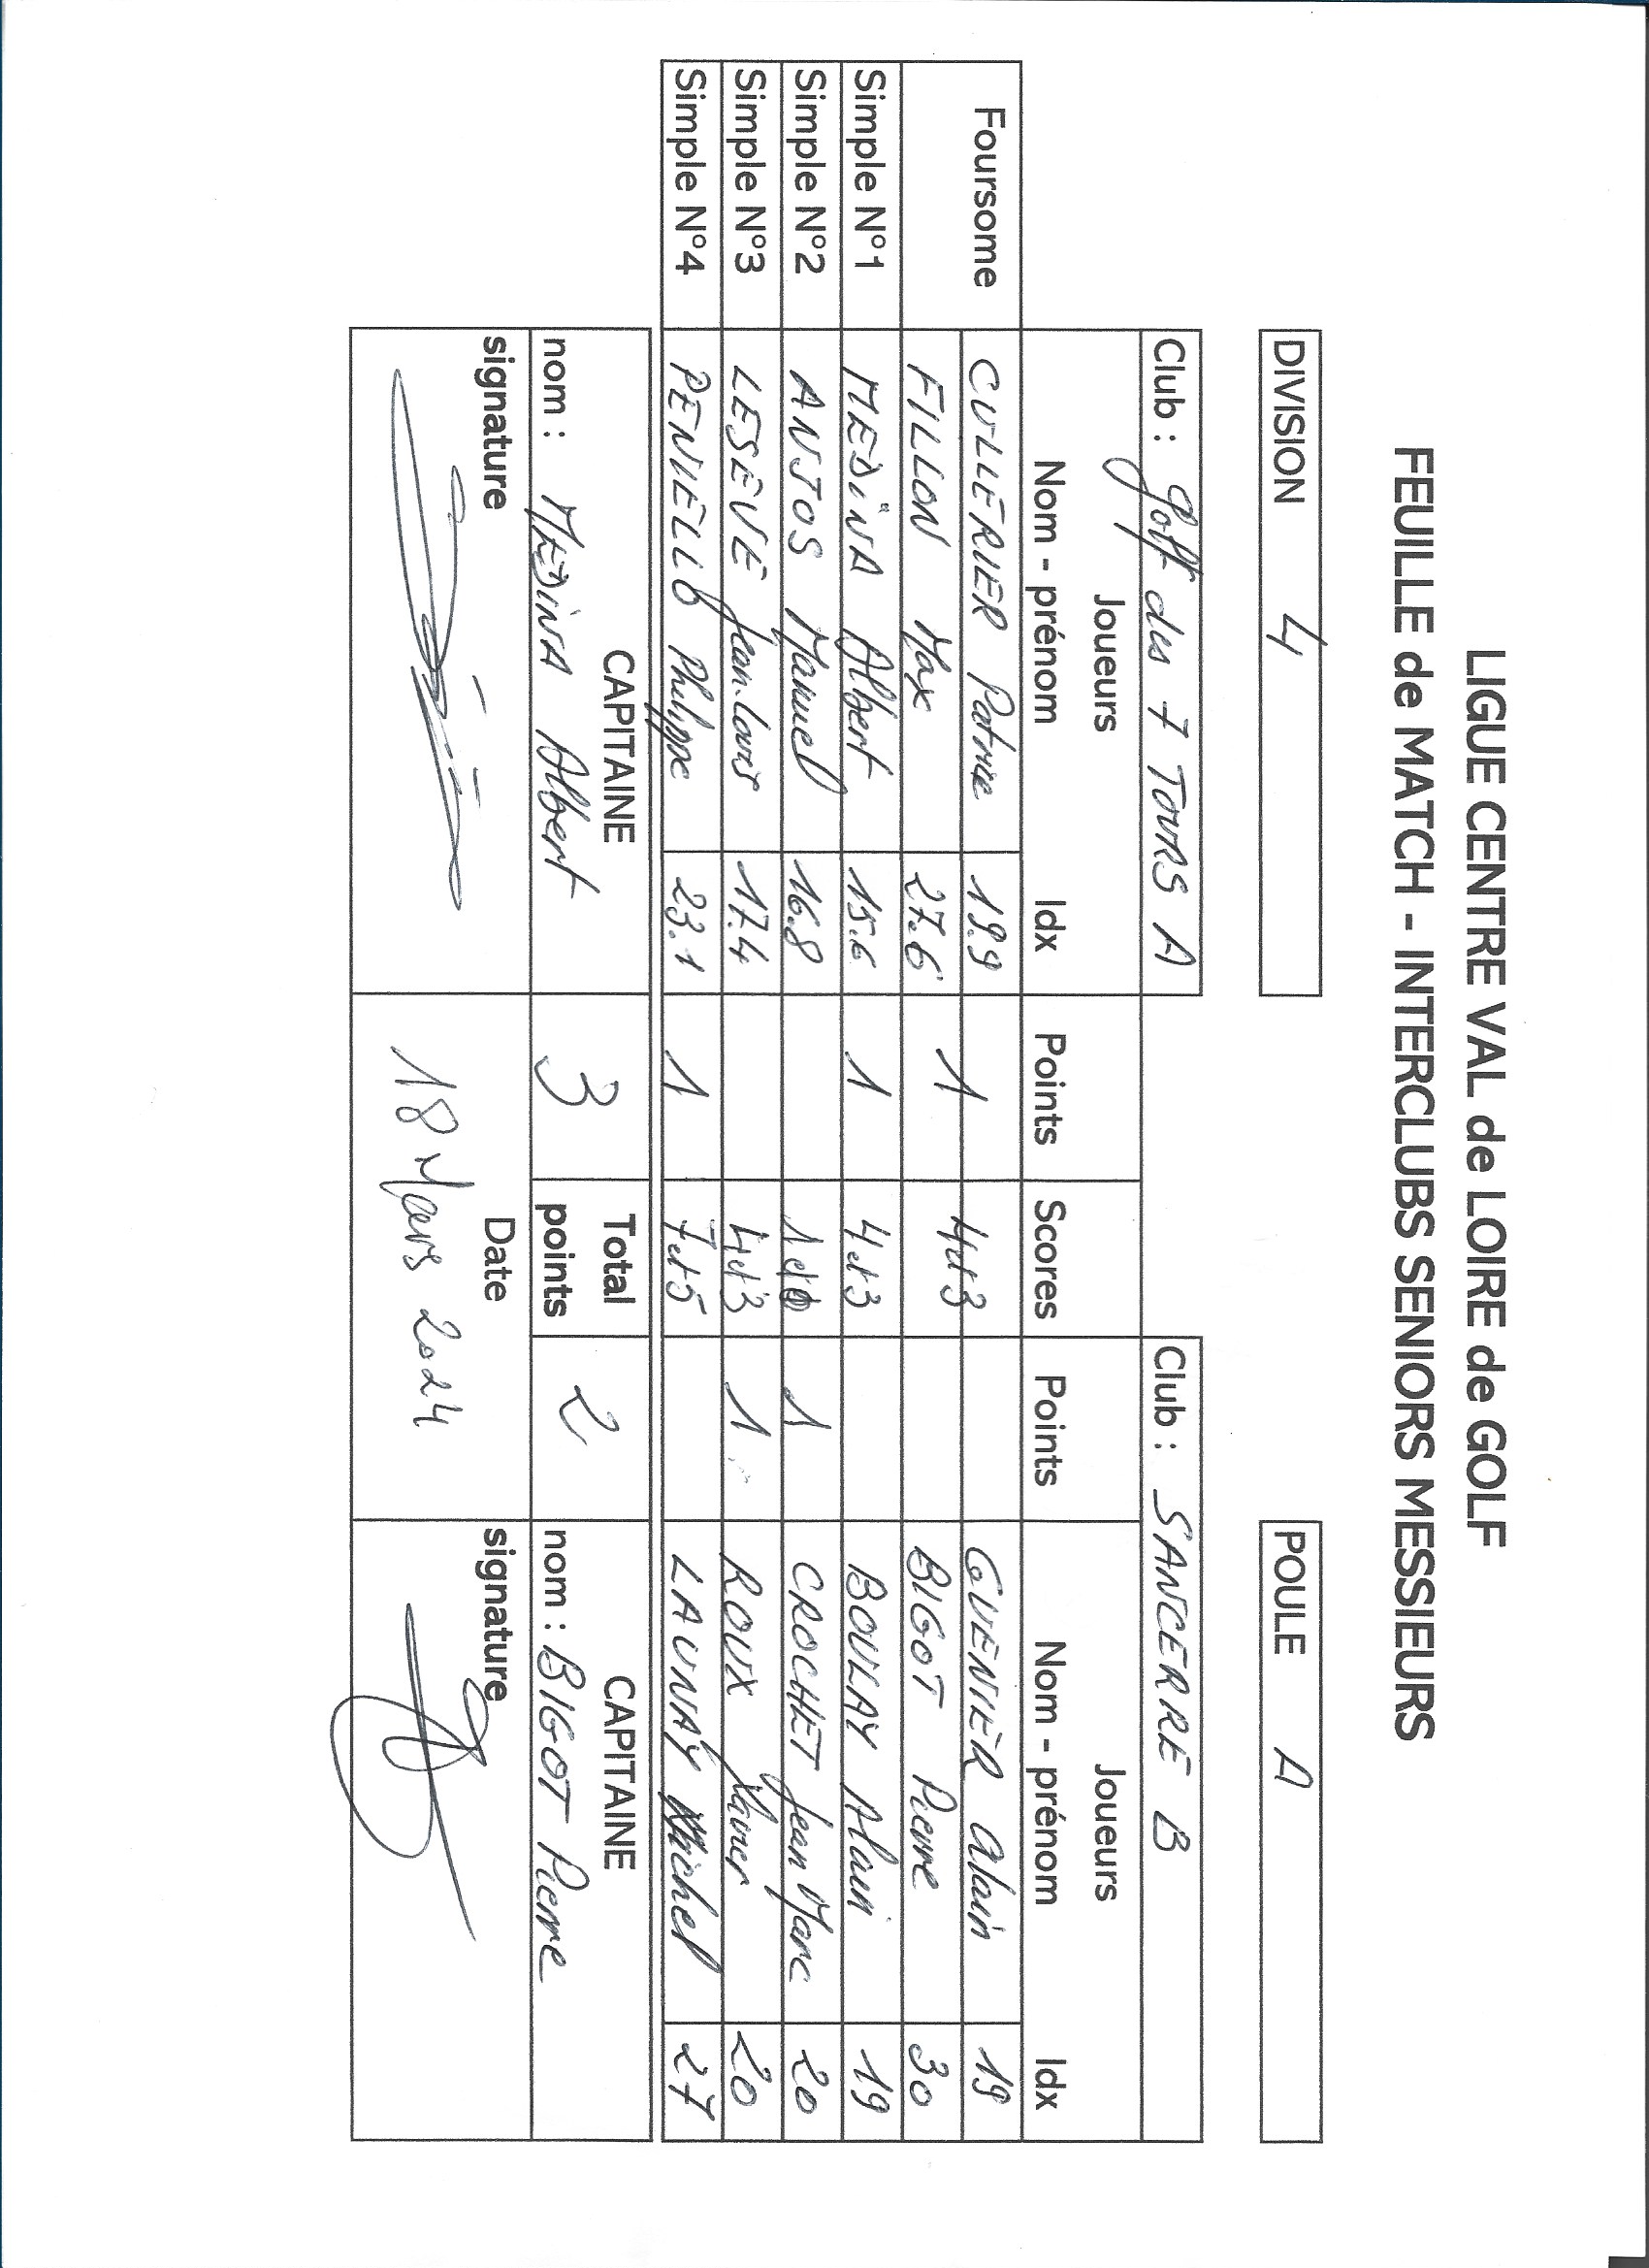 LIGUE CENTRE VAL de LOIRE de GOLF
FEUILLE de MATCH - INTERCLUBS SENIORS MESSIEURS
DIVISION 4 POULE A
Club : Golf des 7 TOURS A Club : SANCERRE B
Joueurs Joueurs
Nom - prénom Idx Points Scores Points Nom - prénom Idx
Foursome CULLERIER Patrice 19.9 1 4et3 GUENIER Alain 19
FILLON Max 27.6 BIGOT Pierre 30
Simple N°1 MEDINA Albert 15.6 1 4et3 BOULAY Alain 19
Simple N°2 ANJOS Manuel 16.8 1et0 1 CROCHET Jean Marc 20
Simple N°3 LESEVE Jean.Louis 17.4 4et3 1 ROUX Xavier 20
Simple N°4 PENIELLO Philippe 23.1 1 7et5 LAUNAY Michel 27
CAPITAINE Total points CAPITAINE
nom : MEDINA Albert 3 2 nom : BIGOT Pierre
signature Date signature
18 Mars 2024